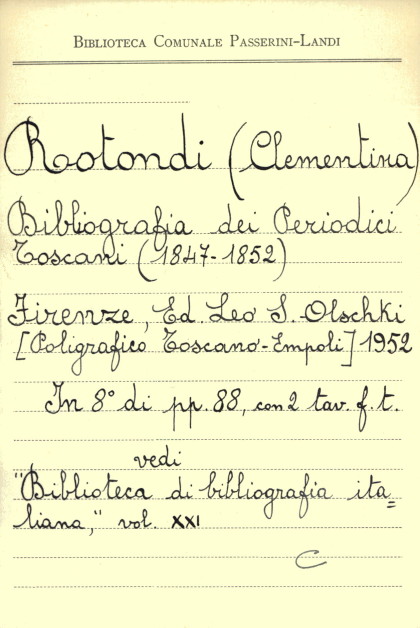 BIBLIOTECA COMUNALE PASSERINI-LANDI
Rotondi (Clementina)
Bibliografia dei Periodici
Toscani (1847-1852)
Firenze, Ed. Leo S. Olschki
[Poligrafico Toscano-Empoli] 1952
In 8° di pp. 88, con 2 tav. f. t.
vedi
"Biblioteca di bibliografia ita=
liana," vol. XXI
C